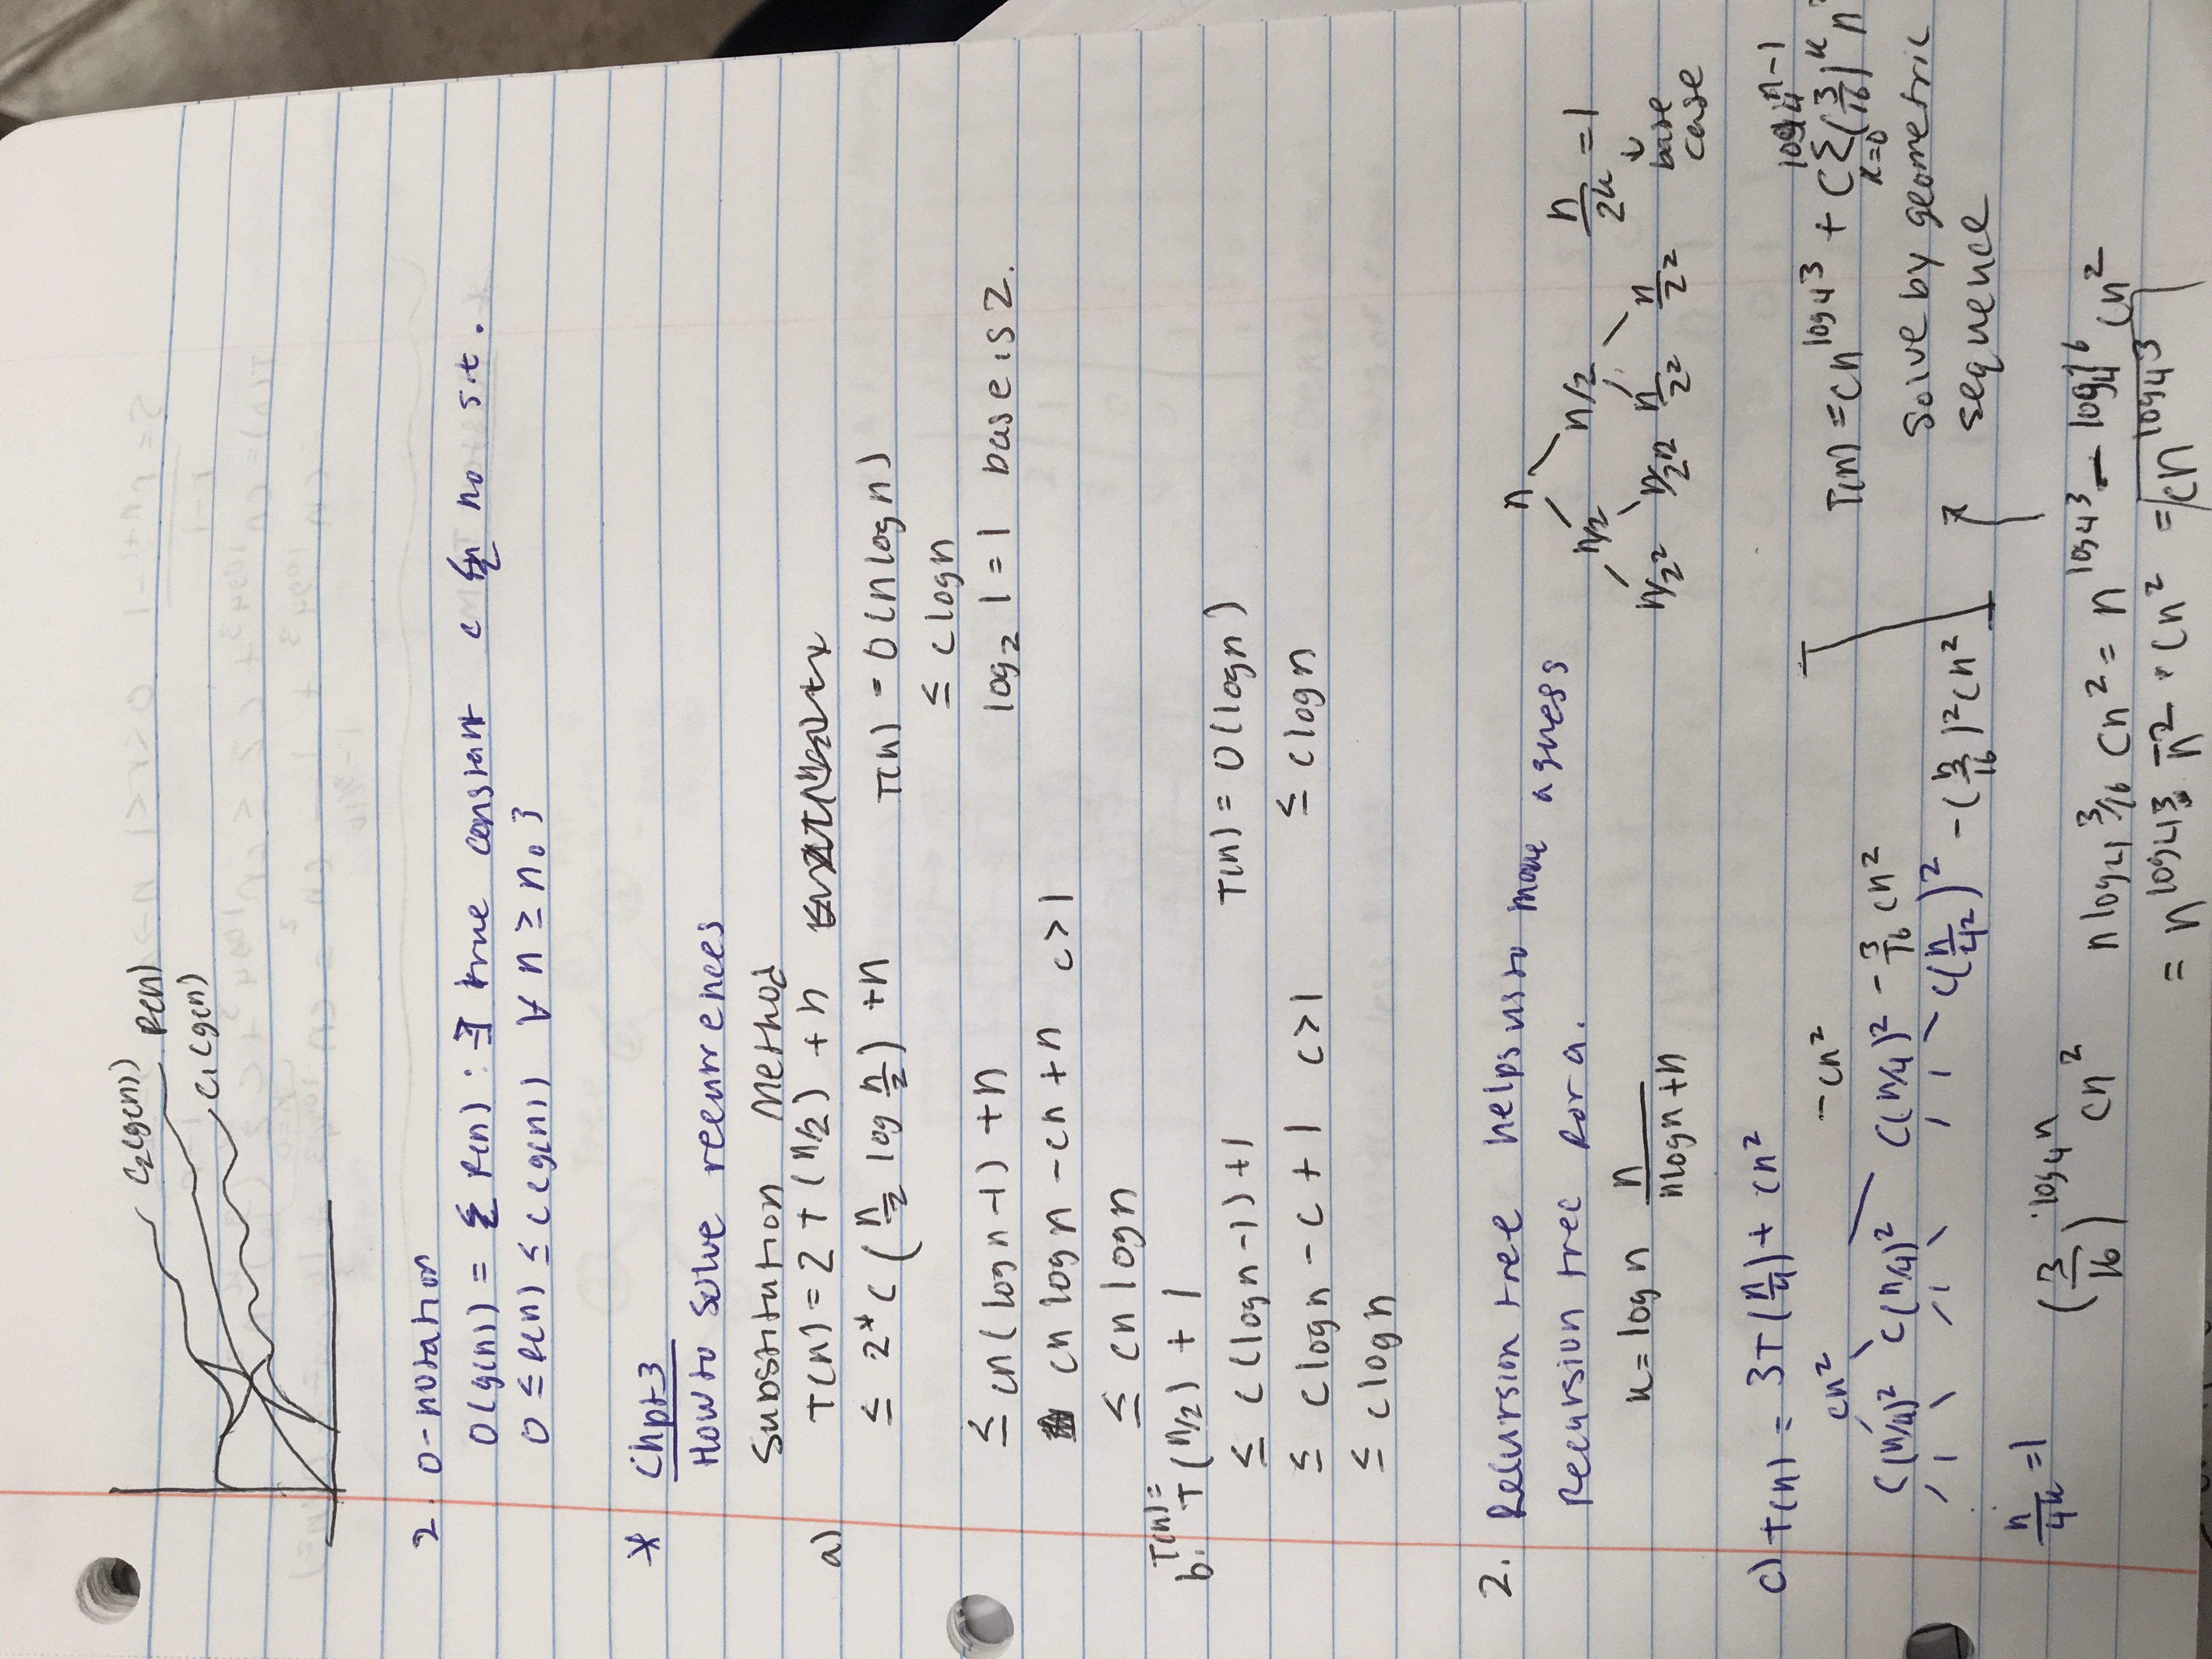 C₂(g(n))
f(n)
C₁(g(n)
2. O-notation
O(g(n)) = { f(n) : ∃ true constant c & n₀ s.t.
0 ≤ f(n) ≤ c(g(n)) ∀ n ≥ n₀ }
* Chpt3
How to solve recurrences
Substitution Method
a) T(n) = 2T(n/2) + n
≤ 2*c(n/2 log n/2) + n
T(n) = O(n log n)
≤ c log n
≤ cn(log n - 1) + n
log₂ 1 = 1 base is 2.
cn log n - cn + n c > 1
≤ cn log n
T(n) =
b. T(n/2) + 1
≤ c(log n - 1) + 1
T(n) = O(log n)
≤ c log n - c + 1 c > 1
≤ c log n
≤ c log n
2. Recursion tree helps us to make a guess
Recursion tree for a.
k = log n n/(n log n + n)
n
n/2 n/2
n/2² n/2² n/2² n/2²
n/2k = 1
↓
base
case
c) T(n) = 3T(n/4) + cn²
cn² - cn²
C(n/4)² C(n/4)² C(n/4)² - 3/16 cn²
C(n/4²)² - (3/16)² cn²
T(n) = cn^log₄3 + C Σ_{k=0}^{log₄n-1} (3/16)^k n²
solve by geometric
sequence
n/4k = 1
(3/16)^log₄n cn²
n log₄ 3/16 cn² = n^log₄3 - log₄16 cn²
= n^log₄3 · n⁻² · cn² = cn^log₄3